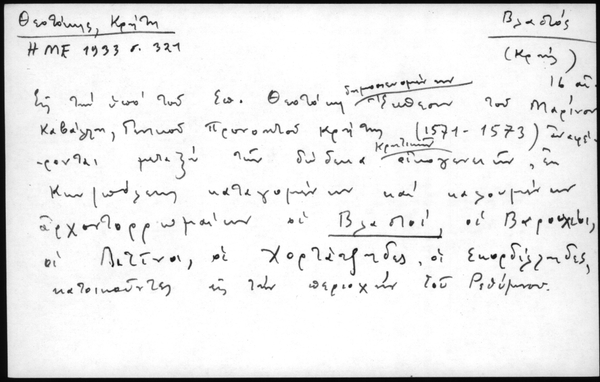 Θεοτόκης, Κρήτη
Βλαστός
ΗΜΕ 1933 σ. 321
(Κρής)
16 αι.
Εις την υπό του Σπ. Θεοτόκη δημοσιευομένην έκθεσιν του Μαρίνου
Καβάλλη, Γενικού Προνοητού Κρήτης (1571-1573) αναφέ-
ρονται μεταξύ των δώδεκα Κρητικών οικογενειών, εκ
Κων/πόλεως καταγομένων και καλουμένων
αρχοντορρωμαίων οι Βλαστοί, οι Βαρούχαι,
οι Λιτίνοι, οι Χορτάτζηδες, οι Σκορδίληδες,
κατοικούντες εις την περιοχήν του Ρεθύμνου.